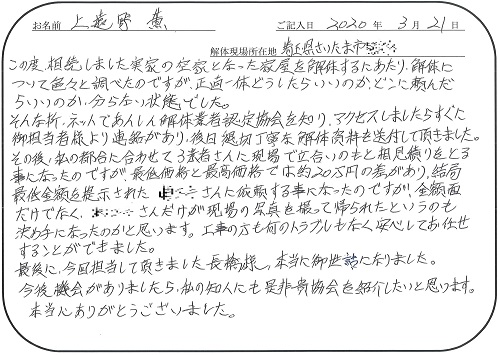 お名前 上遠野 薫 ご記入日 2020 年 3 月 21 日
解体現場所在地 埼玉県さいたま市
この度、相続しました実家の空家となった家屋を解体するにあたり、解体に
ついて色々と調べたのですが、正直一体どうしたらいいのか、どこに頼んだ
らいいのか、分らない状態でした。
そんな折、ネットであんしん解体業者認定協会を知り、アクセスしましたらすぐに
御担当者様より連絡があり、後日親切丁寧な解体資料を送付して頂きました。
その後、私の都合に合わせて3業者さんに現場で立合いのもと相見積りをとる
事になったのですが最低価格と最高価格では約20万円の差があり、結局
最低金額を提示された さんに依頼する事になったのですが、金額面
だけでなく、 さんだけが現場の写真を撮って帰られたというのも
決め手になったのかと思います。工事の方も何のトラブルもなく安心してお任せ
することができました。
最後に、今回担当して頂きました長橋様、本当に御世話になりました。
今後機会がありましたら、私の知人にも是非貴協会を紹介したいと思います。
本当にありがとうございました。